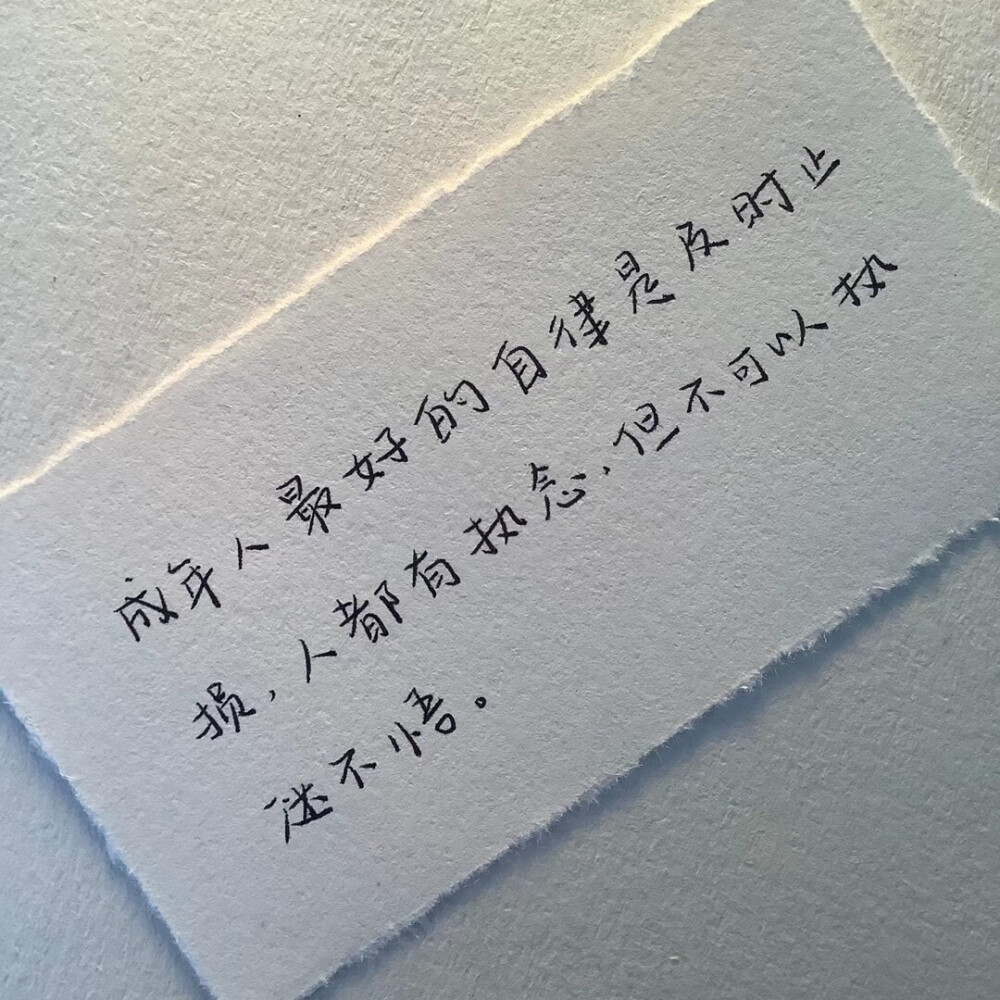 成年人最好的自律是及时止
损，人都有执念，但不可以执
迷不悟。